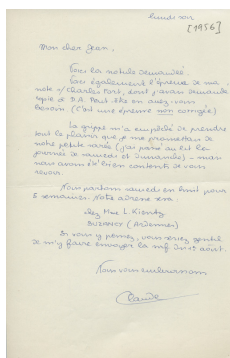 lundi soir
[1956]
Mon cher Jean,
Voici la notule demandée.
Voici également l'épreuve de ma
note s/ Charles Fort, dont j'avais demandé
copie à D.A. Peut-être en avez-vous
besoin (c'est une épreuve non corrigée)
La grippe m'a empêché de prendre
tout le plaisir que je me promettais de
notre petite soirée (j'ai passé au lit les
journées de samedi et dimanche) – mais
nous avons été bien contents de vous
revoir.
Nous partons samedi en huit pour
5 semaines. Notre adresse sera :
chez Mme L. Kientz
BUZANCY (Ardennes)
Si vous y pensez, vous seriez gentil
de m'y faire envoyer la nrf du 1er août.
Nous vous embrassons
Claude